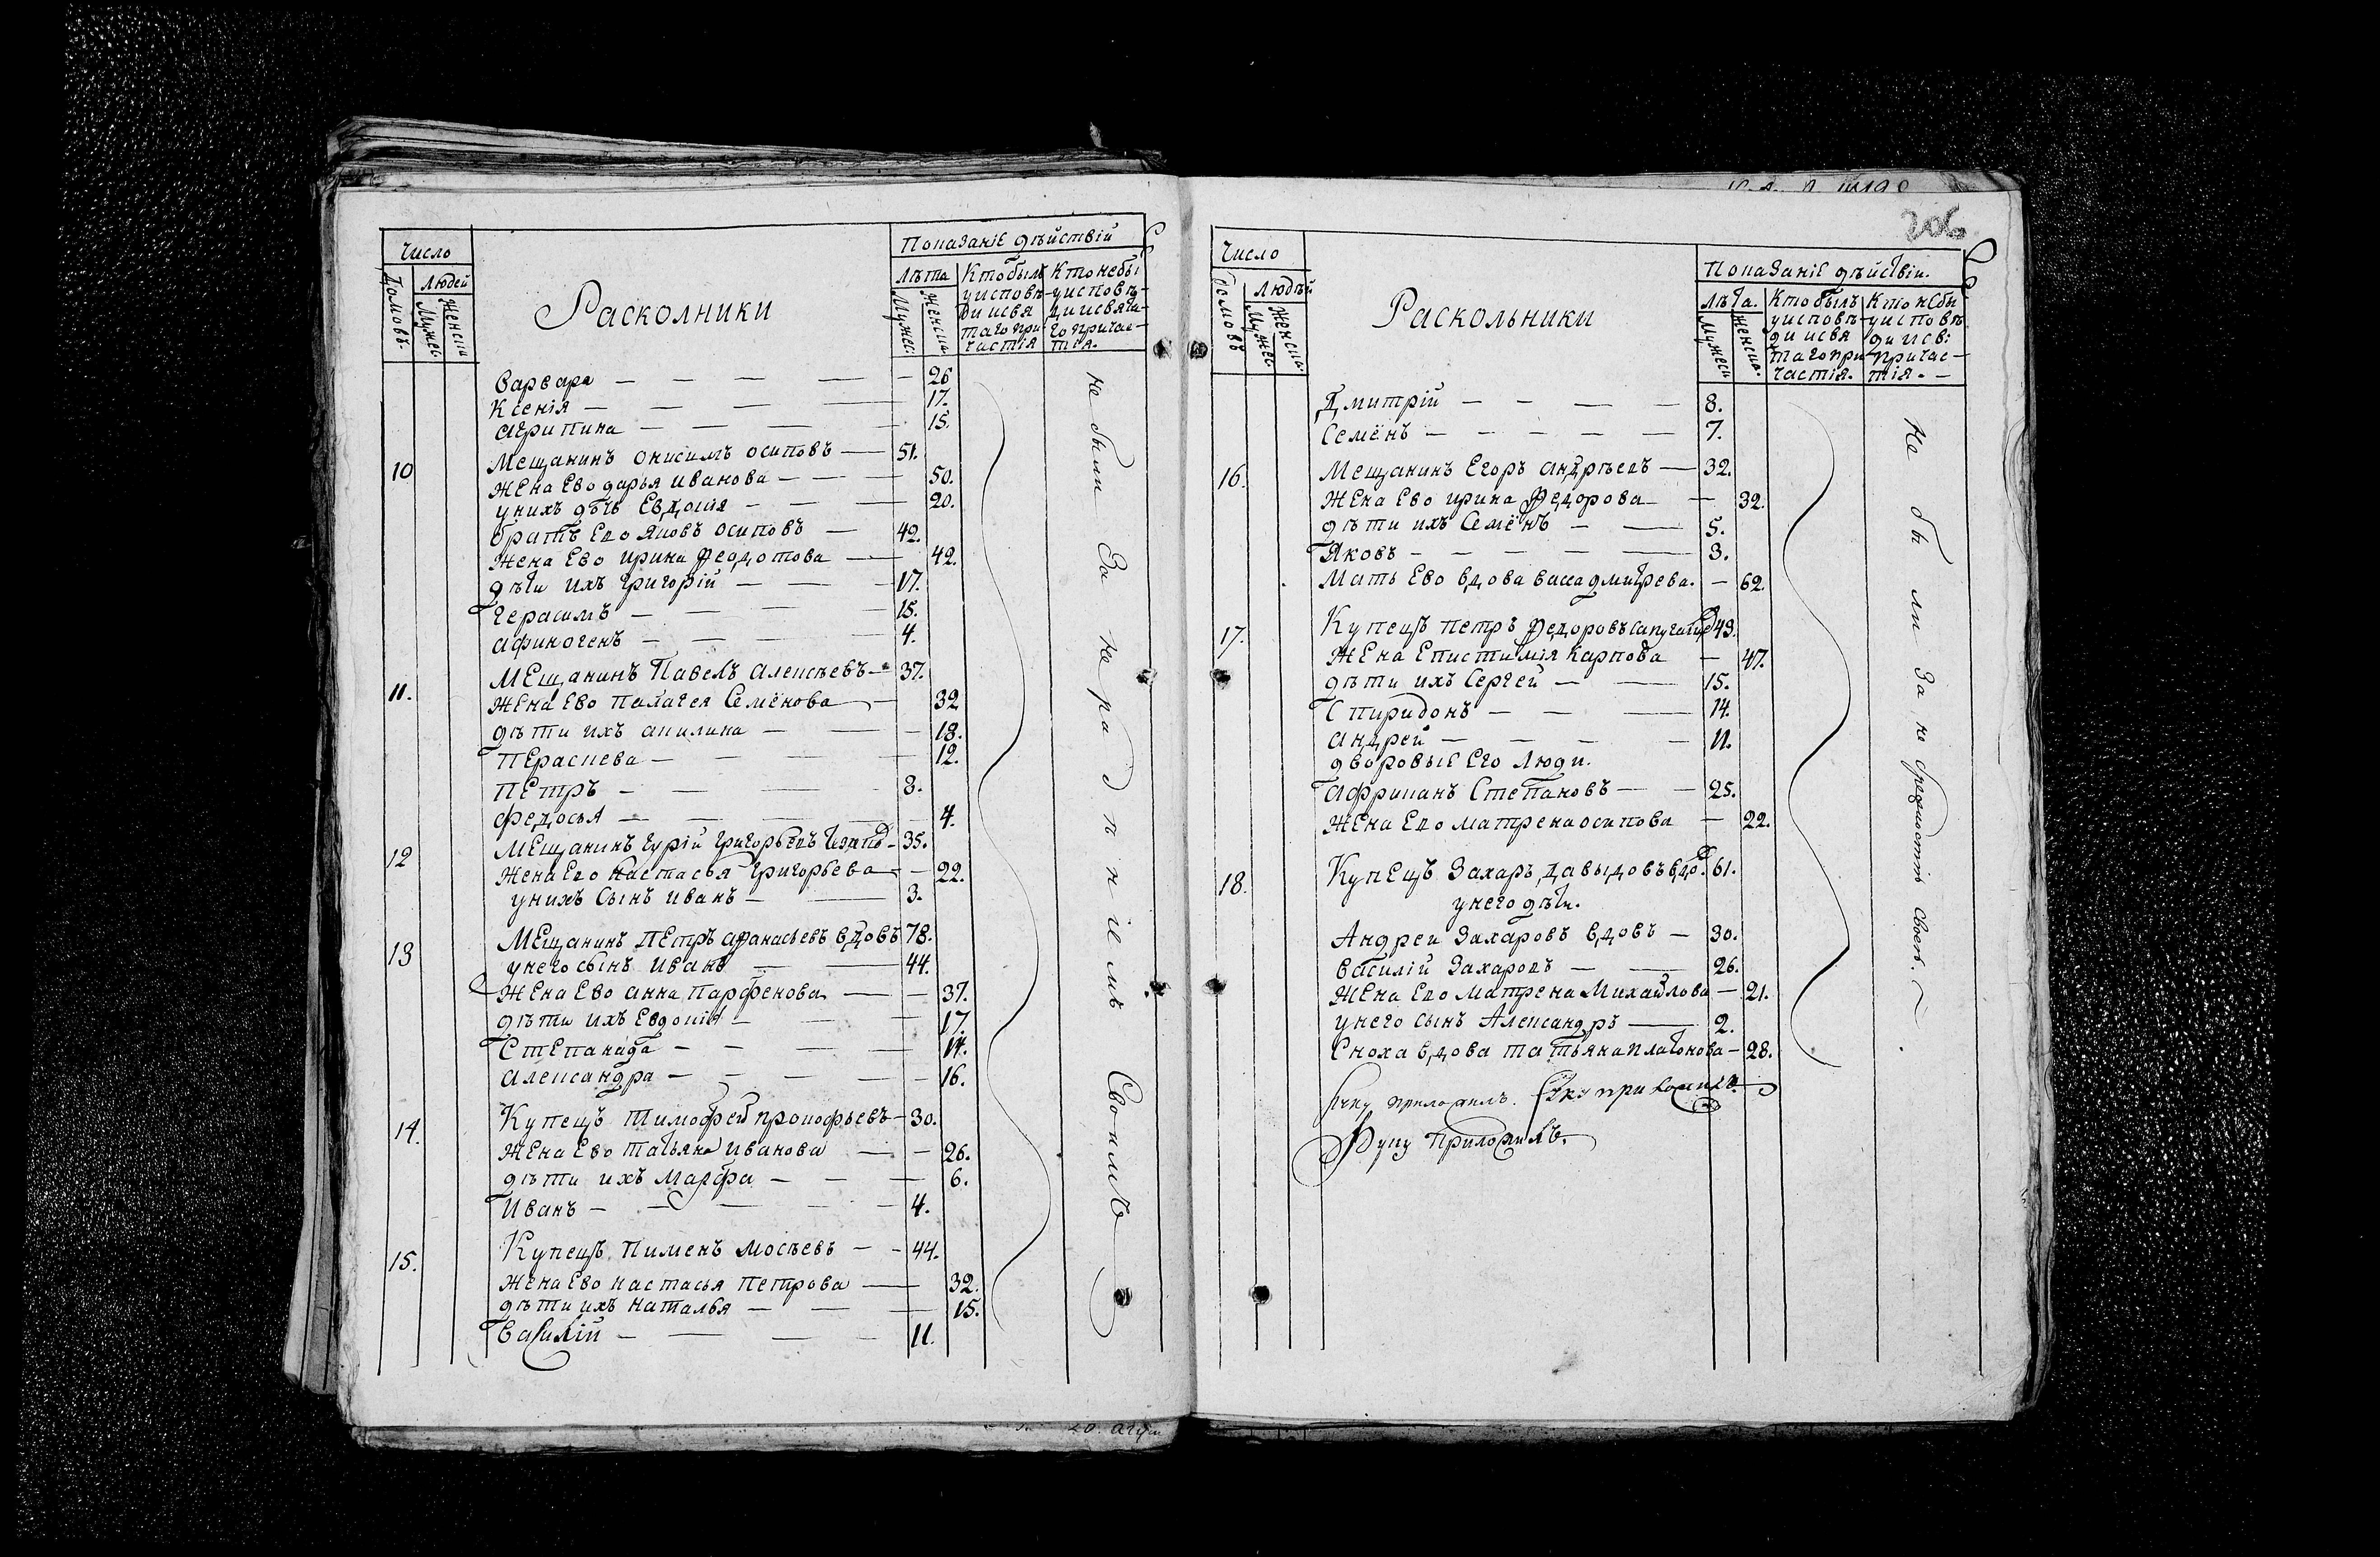 Число
Домовъ
Людей
Мужес
Женска
Расколники
Показаніе дѣйствій
Лѣта
Мужес:
Женска.
Кто былъ у исповѣди и святаго причастія
Кто не бы у исповѣди и святаго причастія.
Варвара — 26
Ксенія — 17.
агрипина — 15.
10 Мещанинъ онисимъ осиповъ — 51.
Жена Ево дарья иванова — 50.
у нихъ дочь Евдокія — 20.
братъ Ево Яковъ осиповъ — 42.
Жена Ево ирина Федотова — 42.
дѣти ихъ григорій — 17.
герасимъ — 15.
афиногенъ — 4.
11. Мещанинъ Павелъ алексѣевъ — 37.
Жена Ево Палагея Семёнова — 32
дѣти ихъ акилина — 18.
Пераскева — 12.
Петръ — 8.
федосья — 4.
12 Мещанинъ гурій григорьевъ — 35.
Жена Ево настасья григорьева — 22.
у нихъ сынъ иванъ — 3.
13 Мещанинъ Петръ афанасьевъ вдовъ 78.
у него сынъ иванъ — 44.
Жена Ево анна Парфенова — 37.
дѣти ихъ Евдокія — 17.
Степанида — 14.
александра — 16.
14. Купецъ тимофей прокофьевъ — 30.
Жена Ево татьяна иванова — 26.
дѣти ихъ марфа — 6.
Иванъ — 4.
15. Купецъ Пименъ мосѣевъ — 44.
Жена Ево настасья Петрова — 32.
дѣти ихъ наталья — 15.
Василій — 11.
не были За нерадѣніемъ Своимъ
206
Число
Домовъ
Людѣй
Мужес
Женска.
Раскольники
Показаніе дѣйствіи.
Лѣта.
Мужеск
Женска.
Кто былъ у исповѣди и святаго причастія.
Кто не бы у исповѣди и св: причастія. —
Дмитрій — 8.
Семёнъ — 7.
16. Мещанинъ Егоръ андрѣевъ — 32.
Жена Ево ирина Федорова — 32.
дѣти ихъ Семёнъ — 5.
Яковъ — 3.
Мать Ево вдова васса дмитрева. — 62.
17. Купецъ петръ Федоровъ 49.
Жена Епистимія карпова — 47.
дѣти ихъ Сергей — 15.
Спиридонъ — 14.
андрей — 11.
дворовые Его люди.
африканъ Степановъ — 25.
Жена Ево матрена осипова — 22.
18. Купецъ Захаръ давыдовъ вдо: 61.
у него дѣти.
Андреи Захаровъ вдовъ — 30.
Василій Захаровъ — 26.
Жена Ево матрена Михайлова — 21.
у него сынъ Александръ — 2.
Сноха вдова татьяна платонова — 28.
Не были За не
руку приложилъ.
руку приложилъ.